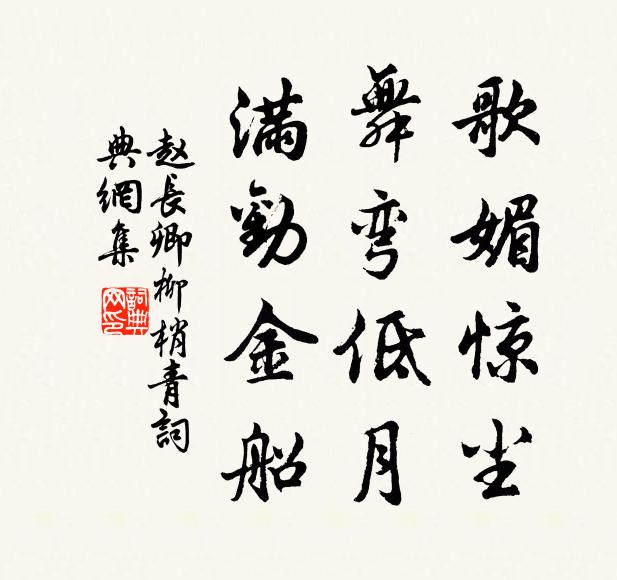 歌媚惊尘
舞弯低月
满勸金船
赵長卿柳梢青詞
典網集
詞典网印